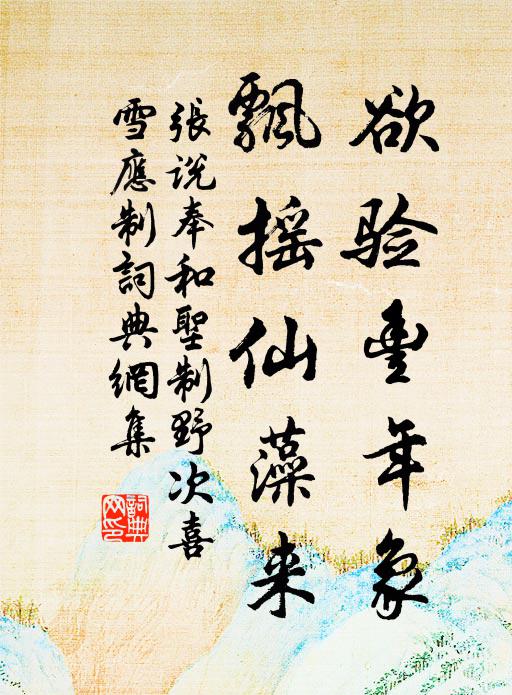 欲验豊年象
飘摇仙藻来
張说奉和聖制野次喜
雪應制詞典網集
詞典網印